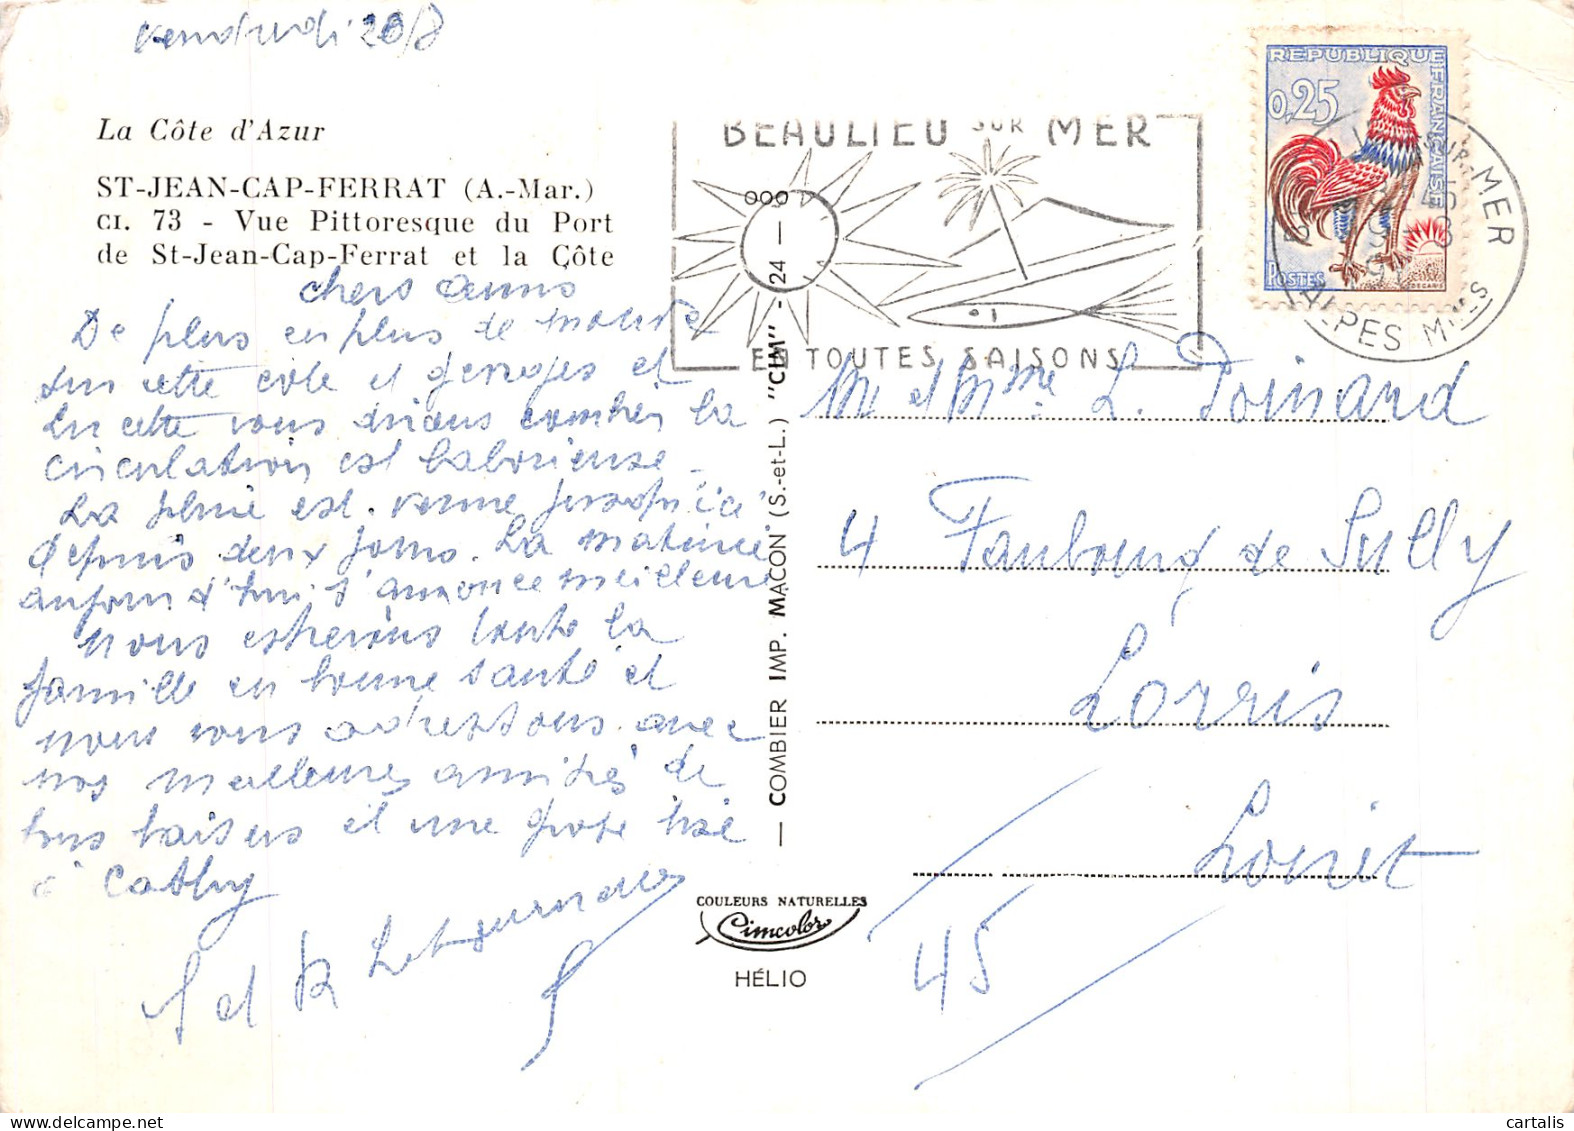 Vendredi 28/8
La Côte d'Azur
ST-JEAN-CAP-FERRAT (A.-Mar.)
CI. 73 - Vue Pittoresque du Port
de St-Jean-Cap-Ferrat et la Côte
chers amis
De plus en plus de monde
sur cette côte et gorges et
en cette vous disons combien la
circulation est laborieuse.
La pluie est venue jusqu'ici
depuis deux jours. La matinée
aujourd'hui s'annonce meilleure
nous espérons toute la
famille en bonne santé et
nous vous adressons avec
nos meilleures amitiés de
bons baisers et une grosse bise
à Cathy
S et R Letourneau
BEAULIEU SUR MER
EN TOUTES SAISONS
REPUBLIQUE FRANÇAISE
0,25
POSTES
DECARIS
SUR MER
45
8
ALPES Mmes
000
— COMBIER IMP. MACON (S.-et-L.) "CIM" - 24 —
COULEURS NATURELLES
Cimcolor
HÉLIO
M et Mme L. Poinard
4 Faubourg de Sully
Lorris
Loiret
45
cartalis